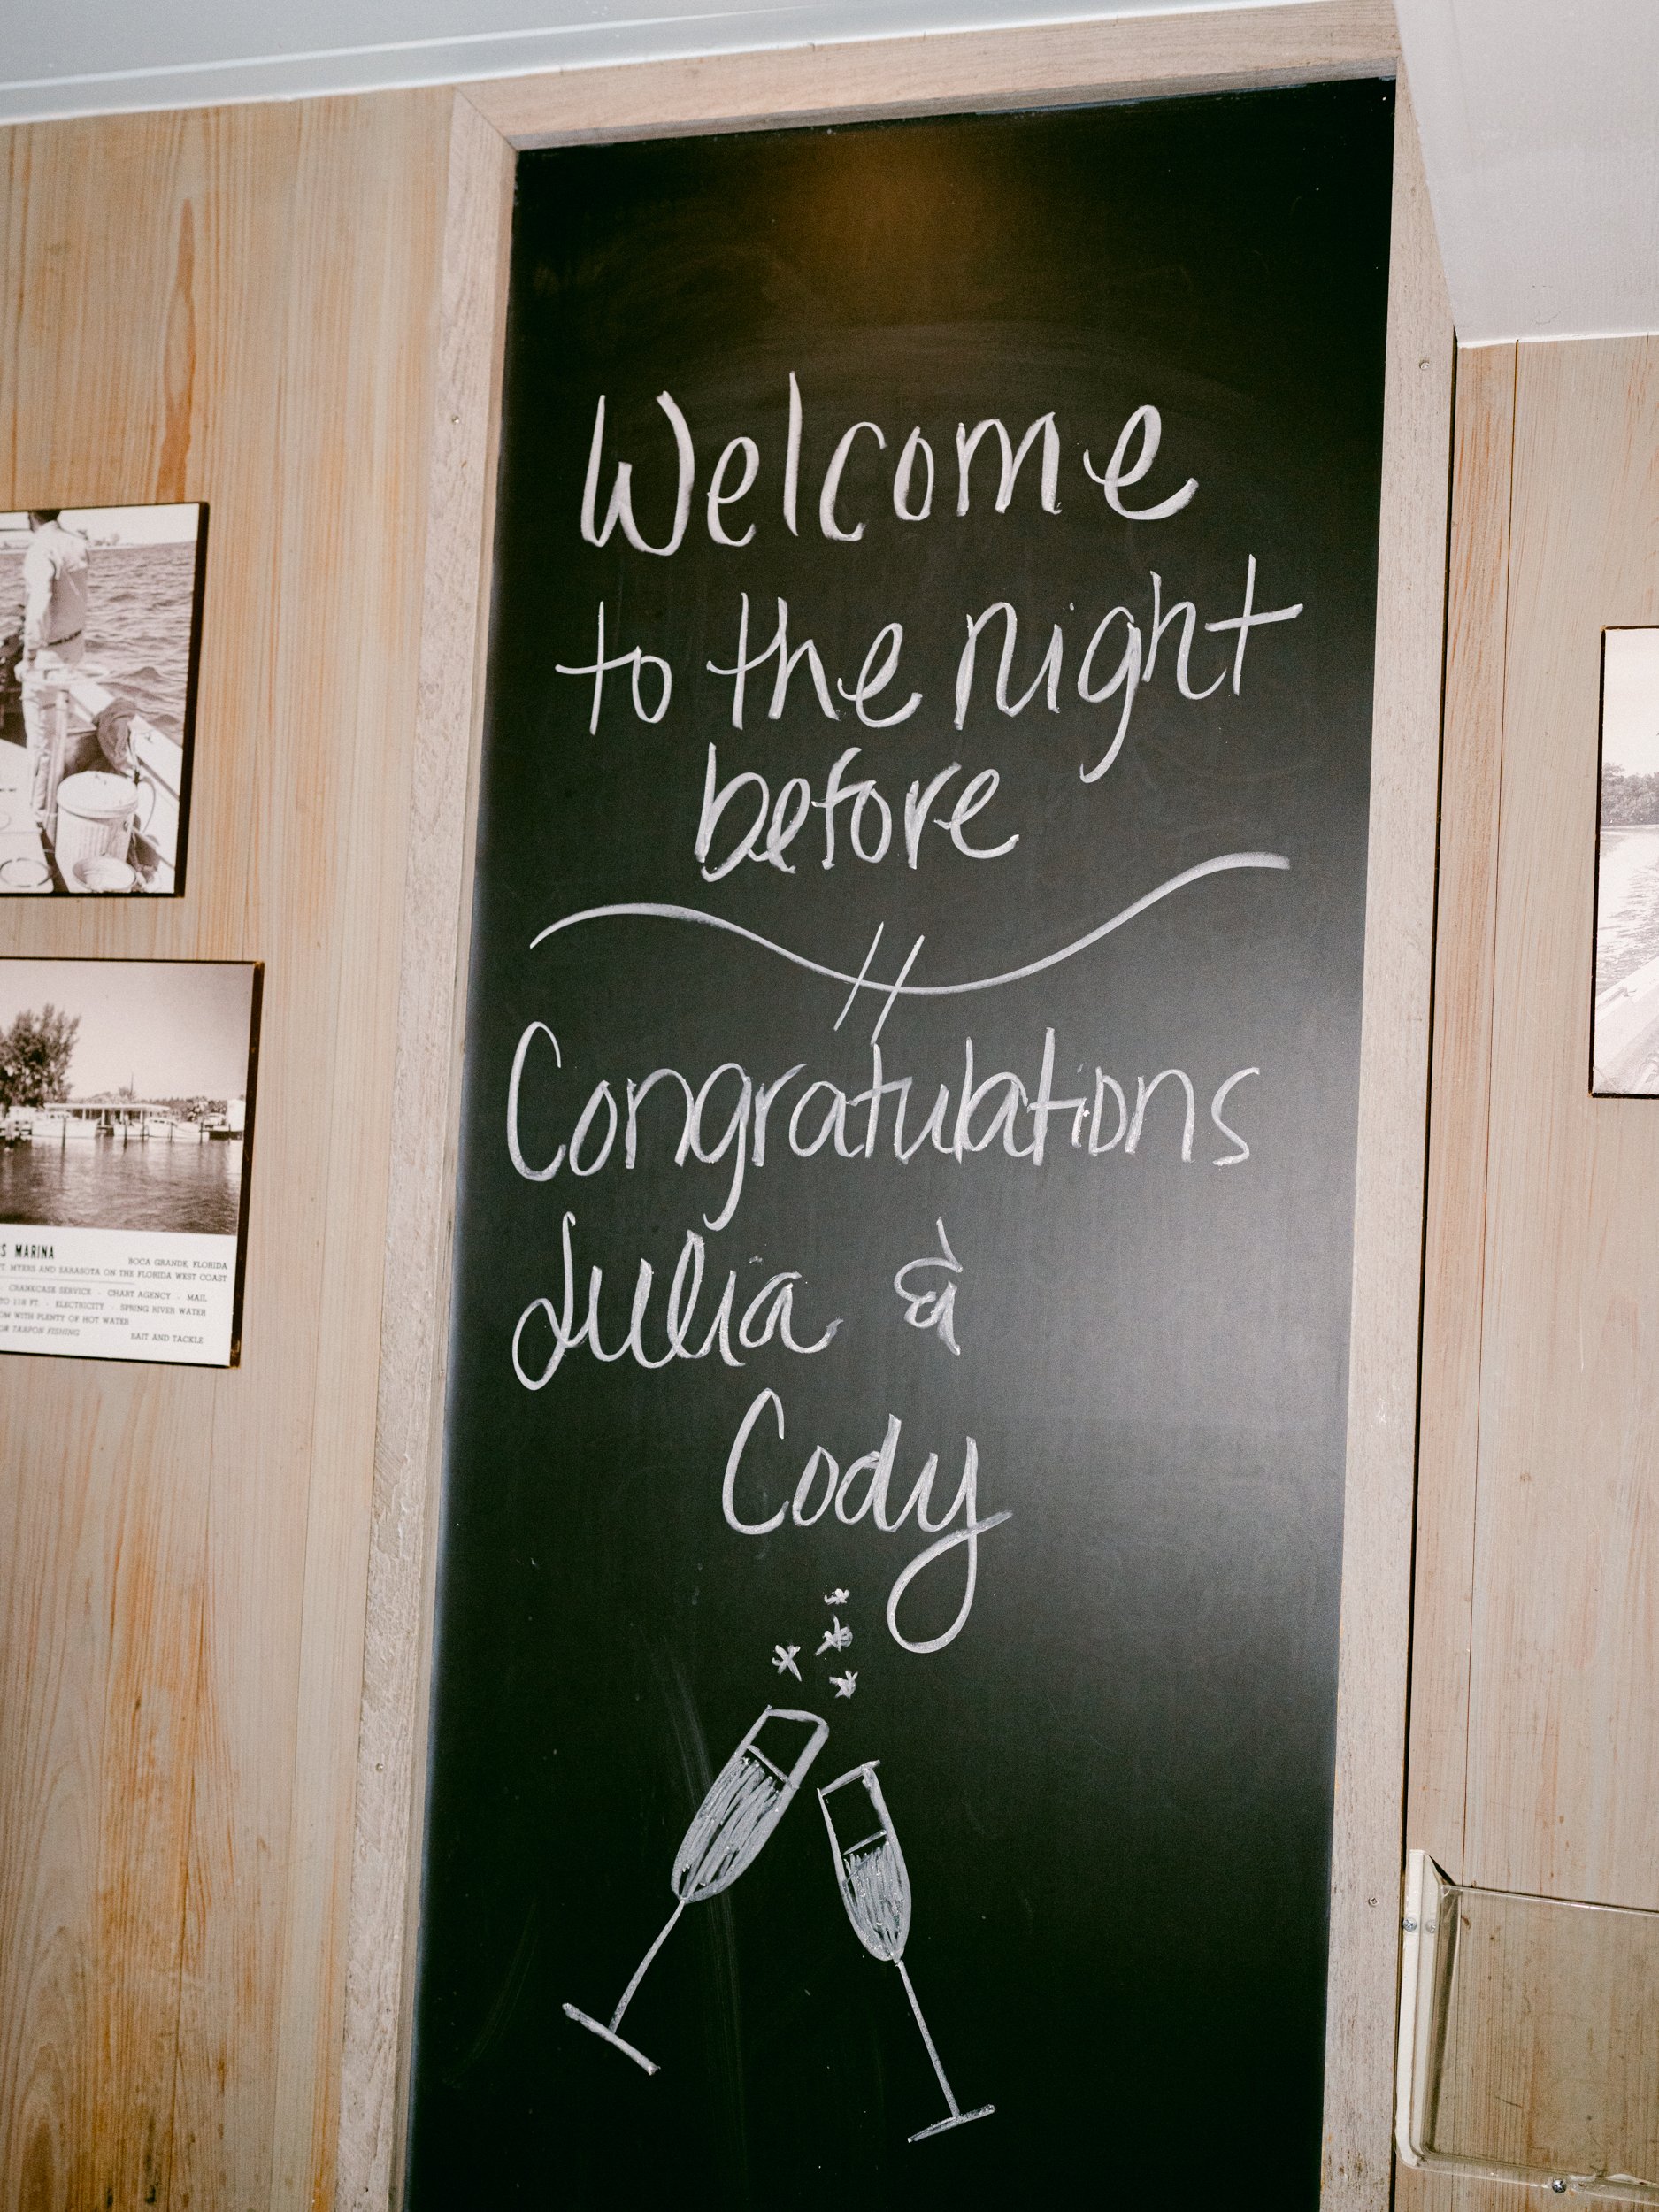 Welcome
to the night
before
Congratulations
Julia &
Cody
S MARINA
BOCA GRANDE, FLORIDA
FT. MYERS AND SARASOTA ON THE FLORIDA WEST COAST
CRANKCASE SERVICE · CHART AGENCY · MAIL
TO 118 FT. · ELECTRICITY · SPRING RIVER WATER
OM WITH PLENTY OF HOT WATER
OR TARPON FISHING
BAIT AND TACKLE